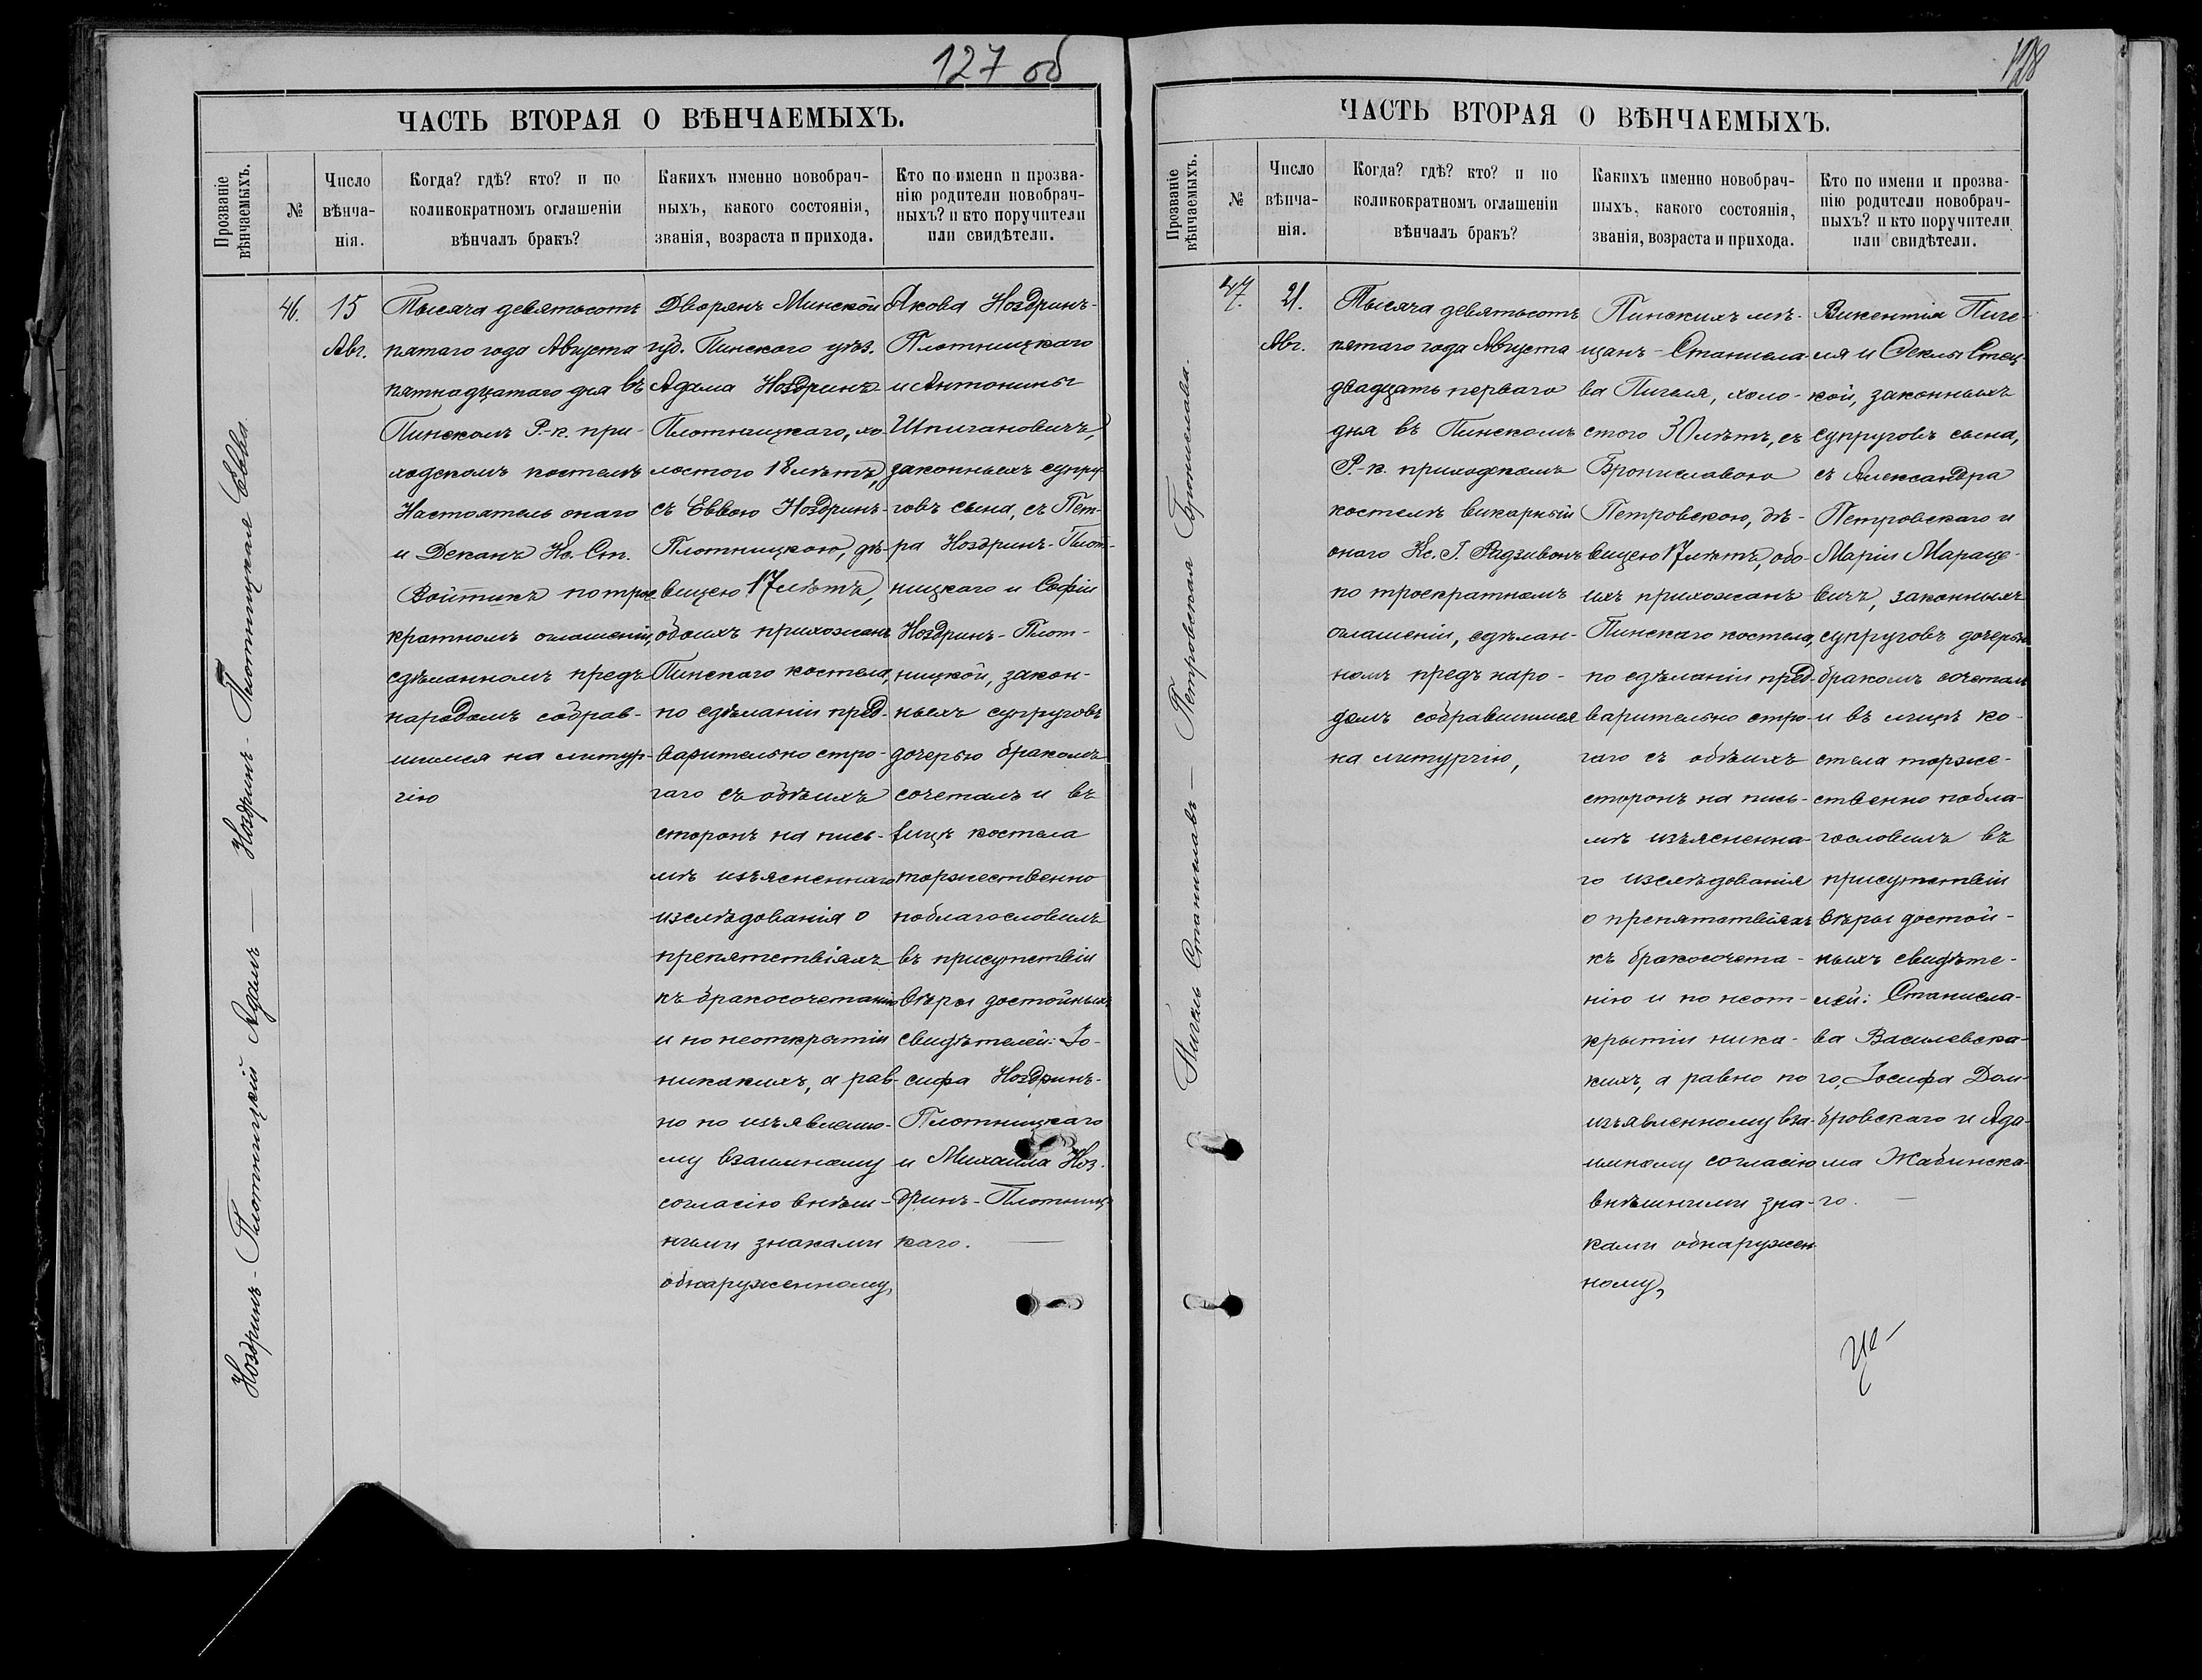 127 об
ЧАСТЬ ВТОРАЯ О ВѢНЧАЕМЫХЪ.
Прозваніе
вѣнчаемыхъ.
№
Число
вѣнча-
нія.
Когда? гдѣ? кто? и по
коликократномъ оглашеніи
вѣнчалъ бракъ?
Какихъ именно новобрач-
ныхъ, какого состоянія,
званія, возраста и прихода.
Кто по имени и прозва-
нію родители новобрач-
ныхъ? и кто поручители
или свидѣтели.
Ноздринъ-Плотницкій Адамъ — Ноздринъ-Плотницкая Евва
46.
15
Авг.
Тысяча девятьсотъ
пятаго года Августа
пятнадцатаго дня въ
Пинскомъ Р.-к. при-
ходскомъ костелѣ
Настоятель онаго
и Деканъ Кс. Ст.
Войтикъ по трое
кратномъ оглашеніи,
сдѣланномъ предъ
народомъ собрав-
шимся на литур-
гію
Дворянъ Минской
губ. Пинского уѣз.
Адама Ноздринъ-
Плотницкаго, хо-
лостого 18 лѣтъ,
съ Еввою Ноздринъ-
Плотницкою, дѣ-
вицею 17 лѣтъ,
обоихъ прихожанъ
Пинскаго костела,
по сдѣланіи пред-
варительно стро-
гаго съ обѣихъ
сторонъ на пись-
мѣ изъясненнаго
изслѣдованія о
препятствіяхъ
къ бракосочетанію
и по неоткрытіи
никакихъ, а рав-
но по изъявленно-
му взаимному
согласію внѣш-
ними знаками
обнаруженному,
Якова Ноздринъ-
Плотницкаго
и Антонины
Шпигановичъ,
законныхъ супру-
говъ сына, съ Пет-
ра Ноздринъ-Плот-
ницкаго и Софіи
Ноздринъ-Плот-
ницкой, закон-
ныхъ супруговъ
дочерью бракомъ
сочеталъ и въ
лицѣ костела
торжественно
поблагословилъ
въ присутствіи
вѣры достойныхъ
свидѣтелей: Іо-
сифа Ноздринъ-
Плотницкаго
и Михаила Ноз-
дринъ-Плотниц-
каго. —
128
ЧАСТЬ ВТОРАЯ О ВѢНЧАЕМЫХЪ.
Прозваніе
вѣнчаемыхъ.
№
Число
вѣнча-
нія.
Когда? гдѣ? кто? и по
коликократномъ оглашеніи
вѣнчалъ бракъ?
Какихъ именно новобрач-
ныхъ, какого состоянія,
званія, возраста и прихода.
Кто по имени и прозва-
нію родители новобрач-
ныхъ? и кто поручители
или свидѣтели.
Пигель Станиславъ — Петровская Бронислава.
47.
21.
Авг.
Тысяча девятьсотъ
пятаго года Августа
двадцать перваго
дня въ Пинскомъ
Р.-к. приходскомъ
костелѣ викарный
онаго Кс. І. Радзивонъ
по троекратномъ
оглашеніи, сдѣлан-
номъ предъ наро-
домъ собравшимся
на литургію,
Пинскихъ мѣ-
щанъ-Станисла
ва Пигеля, холо-
стого 30 лѣтъ, съ
Брониславою
Петровскою, дѣ-
вицею 17 лѣтъ, обо-
ихъ прихожанъ
Пинскаго костела,
по сдѣланіи пред-
варительно стро-
гаго съ обѣихъ
сторонъ на пись-
мѣ изъясненна-
го изслѣдованія
о препятствіяхъ
къ бракосочета-
нію и по неот-
крытіи ника-
кихъ, а равно по
изъявленному вза-
имному согласію
внѣшними зна-
ками обнаружен
ному,
Викентія Пиге-
ля и Ѳеклы Стец-
кой, законныхъ
супруговъ сына,
съ Александра
Петровскаго и
Маріи Мараце-
вичъ, законныхъ
супруговъ дочерью
бракомъ сочеталъ
и въ лицѣ ко-
стела торже-
ственно побла-
гословилъ въ
присутствіи
вѣры достой-
ныхъ свидѣте-
лей: Станисла-
ва Василевска-
го, Іосифа Дом-
бровскаго и Ада-
ма Жабинска-
го. —